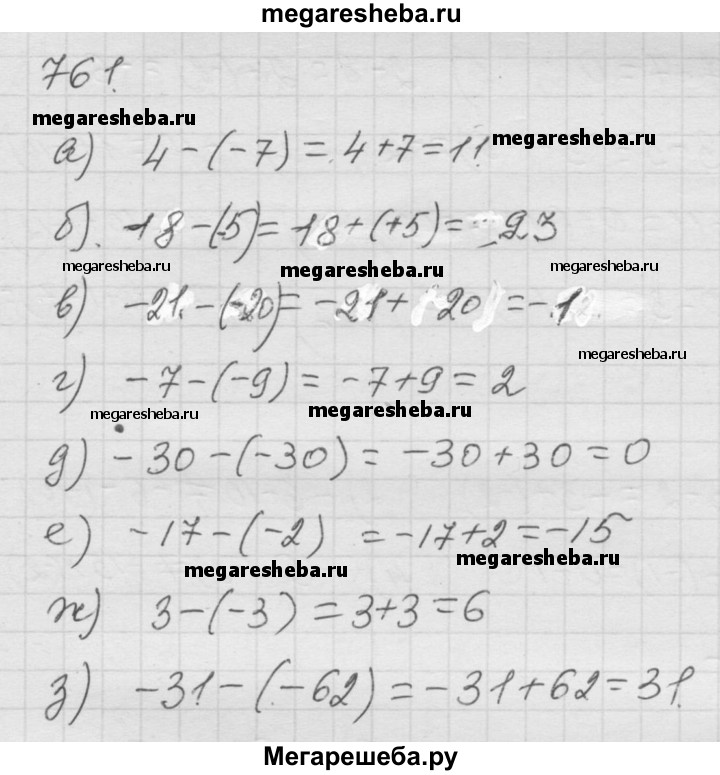 megaresheba.ru
761.
megaresheba.ru
а) 4 - (-7) = 4 + 7 = 11.
megaresheba.ru
б). 18 - (-5) = 18 + (+5) = 23
megaresheba.ru megaresheba.ru megaresheba.ru
в) -21 - (-20) = -21 + 20 = -1
megaresheba.ru
г) -7 - (-9) = -7 + 9 = 2
megaresheba.ru megaresheba.ru
д) -30 - (-30) = -30 + 30 = 0
е) -17 - (-2) = -17 + 2 = -15
megaresheba.ru megaresheba.ru
ж) 3 - (-3) = 3 + 3 = 6
з) -31 - (-62) = -31 + 62 = 31.
Мегарешеба.ру